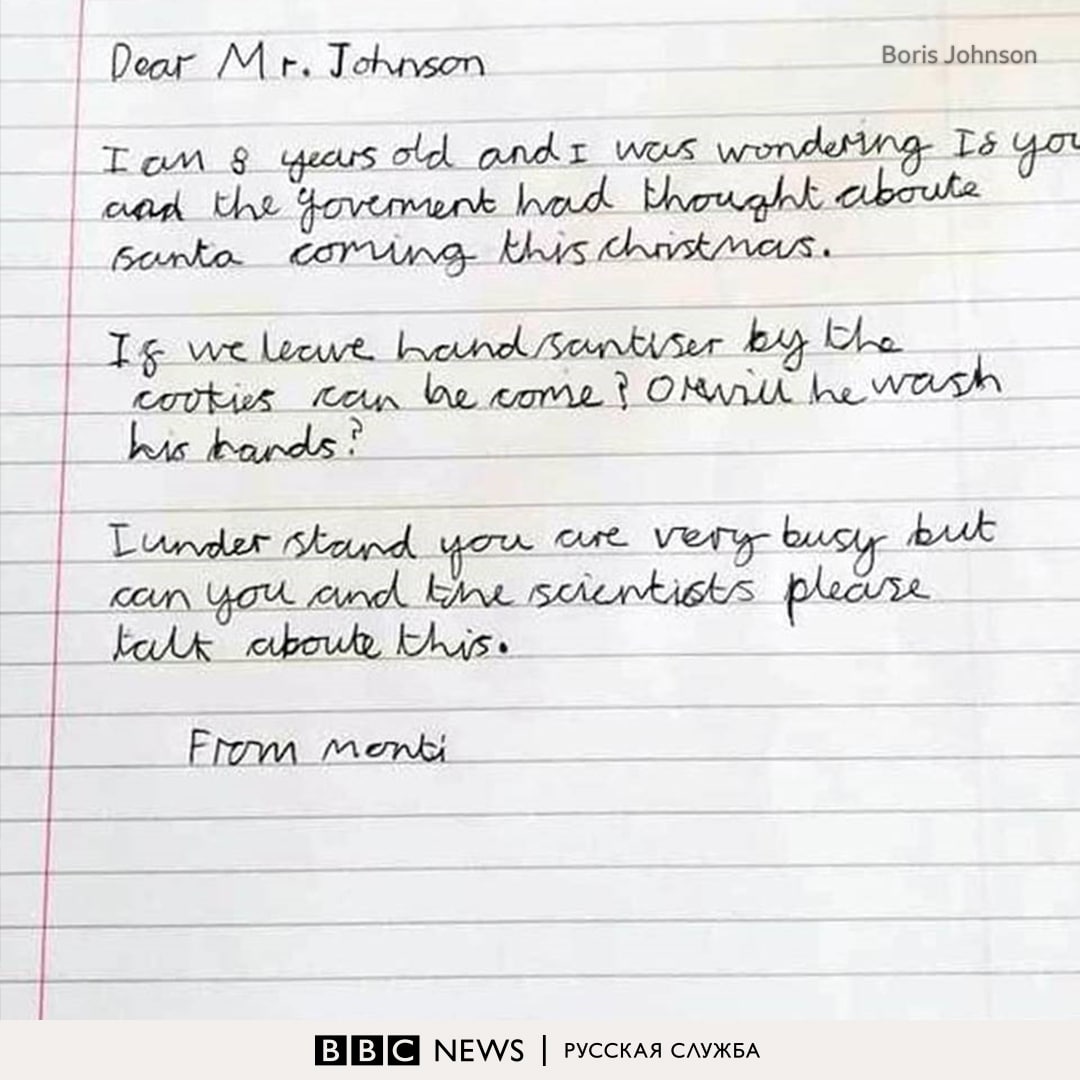 Boris Johnson
Dear Mr. Johnson
I am 8 years old and I was wondering If you
and the goverment had thought aboute
santa coming this christmas.
If we leave hand santiser by the
cookies can he come? Or will he wash
his hands?
I under stand you are very busy but
can you and the scientists please
talk aboute this.
From monti
BBC NEWS | РУССКАЯ СЛУЖБА